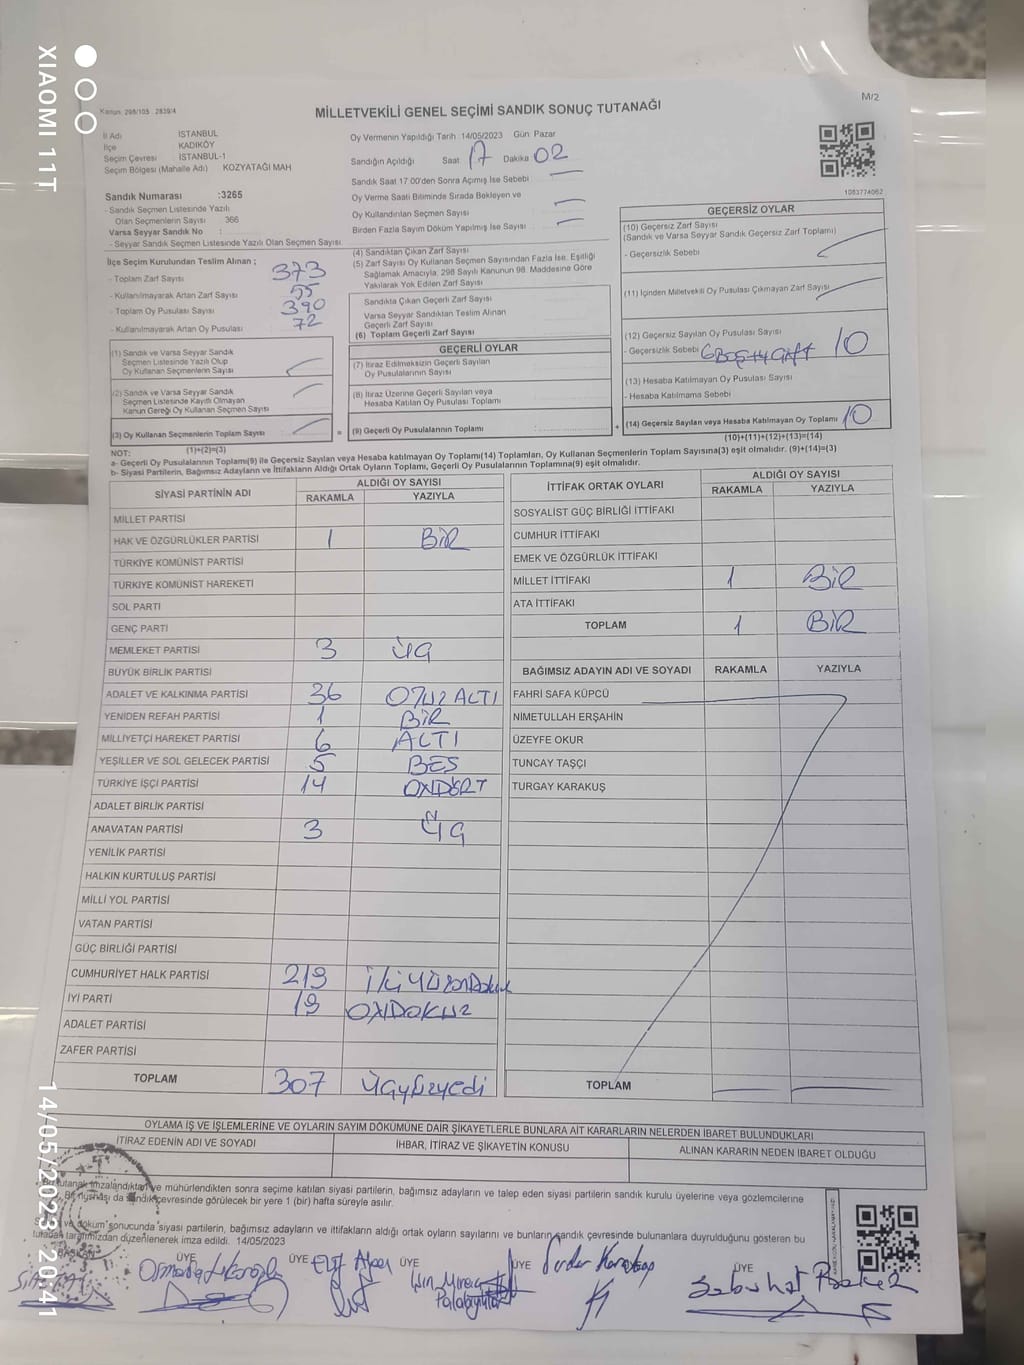 XIAOMI 11T
14/05/2023 20:41
Kanun: 298/105 2839/4
M/2
MİLLETVEKİLİ GENEL SEÇİMİ SANDIK SONUÇ TUTANAĞI
İl Adı İSTANBUL
İlçe KADIKÖY
Seçim Çevresi İSTANBUL-1
Seçim Bölgesi (Mahalle Adı) KOZYATAĞI MAH
Sandık Numarası :3265
- Sandık Seçmen Listesinde Yazılı
Olan Seçmenlerin Sayısı : 366
Varsa Seyyar Sandık No :
- Seyyar Sandık Seçmen Listesinde Yazılı Olan Seçmen Sayısı
İlçe Seçim Kurulundan Teslim Alınan ;
- Toplam Zarf Sayısı 373
- Kullanılmayarak Artan Zarf Sayısı 55
- Toplam Oy Pusulası Sayısı 390
- Kullanılmayarak Artan Oy Pusulası 72
(1) Sandık ve Varsa Seyyar Sandık
Seçmen Listesinde Yazılı Olup
Oy Kullanan Seçmenlerin Sayısı
(2) Sandık ve Varsa Seyyar Sandık
Seçmen Listesinde Kayıtlı Olmayan
Kanun Gereği Oy Kullanan Seçmen Sayısı
(3) Oy Kullanan Seçmenlerin Toplam Sayısı
(1)+(2)=(3)
Oy Vermenin Yapıldığı Tarih 14/05/2023 Gün Pazar
Sandığın Açıldığı Saat 17 Dakika 02
Sandık Saat 17.00'den Sonra Açımış İse Sebebi
Oy Verme Saati Bitiminde Sırada Bekleyen ve
Oy Kullandırılan Seçmen Sayısı
Birden Fazla Sayım Döküm Yapılmış İse Sayısı
(4) Sandıktan Çıkan Zarf Sayısı
(5) Zarf Sayısı Oy Kullanan Seçmen Sayısından Fazla İse, Eşitliği
Sağlamak Amacıyla, 298 Sayılı Kanunun 98. Maddesine Göre
Yakılarak Yok Edilen Zarf Sayısı
Sandıkta Çıkan Geçerli Zarf Sayısı
Varsa Seyyar Sandıktan Teslim Alınan
Geçerli Zarf Sayısı
(6) Toplam Geçerli Zarf Sayısı
GEÇERLİ OYLAR
(7) İtiraz Edilmeksizin Geçerli Sayılan
Oy Pusulalarının Sayısı
(8) İtiraz Üzerine Geçerli Sayılan veya
Hesaba Katılan Oy Pusulası Toplamı
= (9) Geçerli Oy Pusulalarının Toplamı +
1083774062
GEÇERSİZ OYLAR
(10) Geçersiz Zarf Sayısı
(Sandık ve Varsa Seyyar Sandık Geçersiz Zarf Toplamı)
- Geçersizlik Sebebi
(11) İçinden Milletvekili Oy Pusulası Çıkmayan Zarf Sayısı
(12) Geçersiz Sayılan Oy Pusulası Sayısı 10
- Geçersizlik Sebebi 6 BOŞ + 4 ÇİFT
(13) Hesaba Katılmayan Oy Pusulası Sayısı
- Hesaba Katılmama Sebebi
(14) Geçersiz Sayılan veya Hesaba Katılmayan Oy Toplamı 10
(10)+(11)+(12)+(13)=(14)
NOT:
a- Geçerli Oy Pusulalarının Toplamı(9) ile Geçersiz Sayılan veya Hesaba Katılmayan Oy Toplamı(14) Toplamları, Oy Kullanan Seçmenlerin Toplam Sayısına(3) eşit olmalıdır. (9)+(14)=(3)
b- Siyasi Partilerin, Bağımsız Adayların ve İttifakların Aldığı Ortak Oyların Toplamı, Geçerli Oy Pusulalarının Toplamına(9) eşit olmalıdır.
SİYASİ PARTİNİN ADI ALDIĞI OY SAYISI
RAKAMLA YAZIYLA
MİLLET PARTİSİ
HAK VE ÖZGÜRLÜKLER PARTİSİ 1 BİR
TÜRKİYE KOMÜNİST PARTİSİ
TÜRKİYE KOMÜNİST HAREKETİ
SOL PARTİ
GENÇ PARTİ
MEMLEKET PARTİSİ 3 ÜÇ
BÜYÜK BİRLİK PARTİSİ
ADALET VE KALKINMA PARTİSİ 36 OTUZ ALTI
YENİDEN REFAH PARTİSİ 1 BİR
MİLLİYETÇİ HAREKET PARTİSİ 6 ALTI
YEŞİLLER VE SOL GELECEK PARTİSİ 5 BEŞ
TÜRKİYE İŞÇİ PARTİSİ 14 ONDÖRT
ADALET BİRLİK PARTİSİ
ANAVATAN PARTİSİ 3 ÜÇ
YENİLİK PARTİSİ
HALKIN KURTULUŞ PARTİSİ
MİLLİ YOL PARTİSİ
VATAN PARTİSİ
GÜÇ BİRLİĞİ PARTİSİ
CUMHURİYET HALK PARTİSİ 219 İKİ YÜZ ONDOKUZ
İYİ PARTİ 19 ONDOKUZ
ADALET PARTİSİ
ZAFER PARTİSİ
TOPLAM 307 ÜÇyüzyedi
İTTİFAK ORTAK OYLARI ALDIĞI OY SAYISI
RAKAMLA YAZIYLA
SOSYALİST GÜÇ BİRLİĞİ İTTİFAKI
CUMHUR İTTİFAKI
EMEK VE ÖZGÜRLÜK İTTİFAKI
MİLLET İTTİFAKI 1 BİR
ATA İTTİFAKI
TOPLAM 1 BİR
BAĞIMSIZ ADAYIN ADI VE SOYADI RAKAMLA YAZIYLA
FAHRİ SAFA KÜPCÜ
NİMETULLAH ERŞAHİN
ÜZEYFE OKUR
TUNCAY TAŞÇI
TURGAY KARAKUŞ
TOPLAM
OYLAMA İŞ VE İŞLEMLERİNE VE OYLARIN SAYIM DÖKÜMÜNE DAİR ŞİKAYETLERLE BUNLARA AİT KARARLARIN NELERDEN İBARET BULUNDUKLARI
İTİRAZ EDENİN ADI VE SOYADI İHBAR, İTİRAZ VE ŞİKAYETİN KONUSU ALINAN KARARIN NEDEN İBARET OLDUĞU
Bu tutanak imzalandıktan ve mühürlendikten sonra seçime katılan siyasi partilerin, bağımsız adayların ve talep eden siyasi partilerin sandık kurulu üyelerine veya gözlemcilerine
Bir nüshası da sandık çevresinde görülecek bir yere 1 (bir) hafta süreyle asılır.
ve döküm sonucunda siyasi partilerin, bağımsız adayların ve ittifakların aldığı ortak oyların sayılarını ve bunların sandık çevresinde bulunanlara duyrulduğunu gösteren bu
tutanak tarafımızdan düzenlenerek imza edildi. 14/05/2023
BAŞKAN ÜYE ÜYE ÜYE ÜYE ÜYE
Serdar